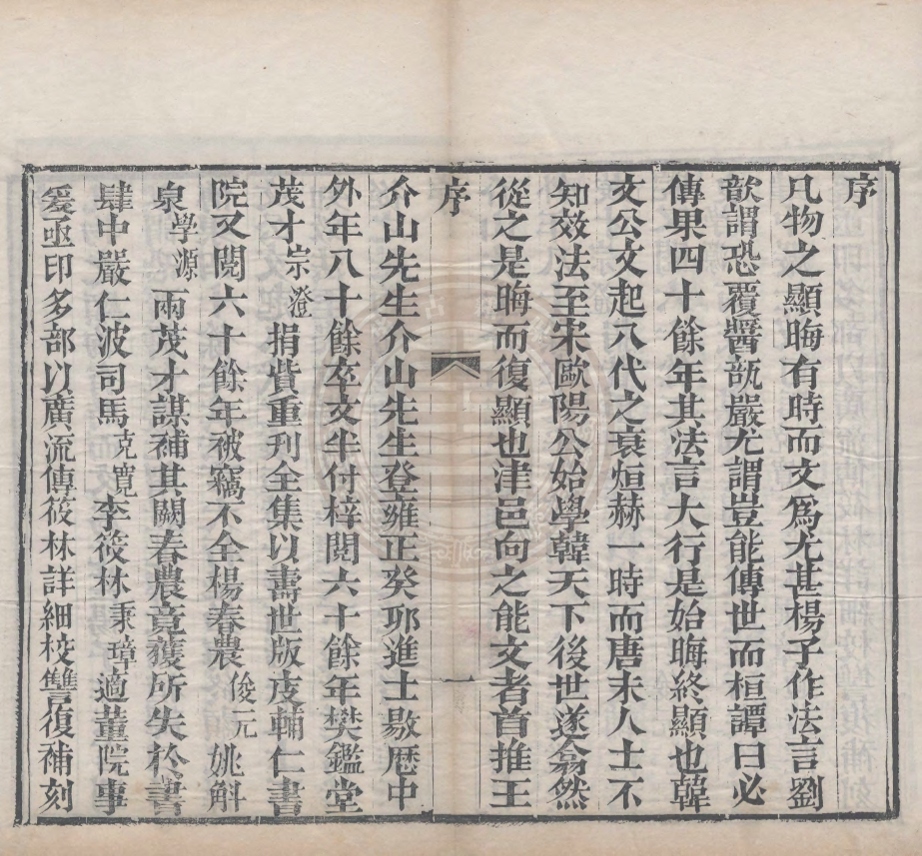 序
凡物之顯晦有時而文爲尤甚楊子作法言劉
歆謂恐覆醬瓿嚴尤謂豈能傳世而桓譚曰必
傳果四十餘年其法言大行是始晦終顯也韓
文公文起八代之衰烜赫一時而唐末人士不
知效法至宋歐陽公始學韓天下後世遂翕然
從之是晦而復顯也津邑向之能文者首推王
序
一
介山先生介山先生登雍正癸丣進士敭歷中
外年八十餘卒文半付梓閱六十餘年樊鑑堂
茂才宗澄捐貲重刊全集以壽世版庋輔仁書
院又閱六十餘年被竊不全楊春農俊元姚斛
泉學源兩茂才謀補其闕春農竟獲所失於書
肆中嚴仁波司馬克寬李筱林秉璋適董院事
爰亟印多部以廣流傳筱林詳細校讐復補刻